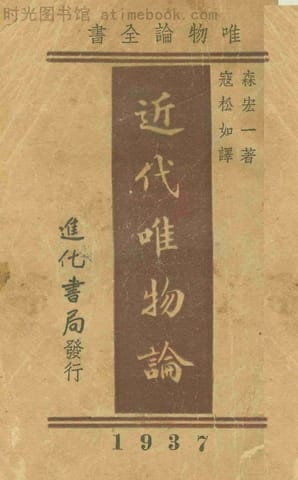 时光图书馆 atimebook.com
書全論物唯
森宏一著
寇松如譯
近代唯物論
進化書局發行
1937